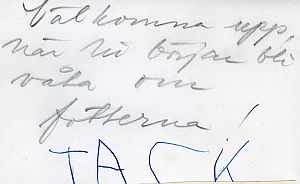 Välkomna upp,
när ni börjar bli
våta om
fötterna!
TACK